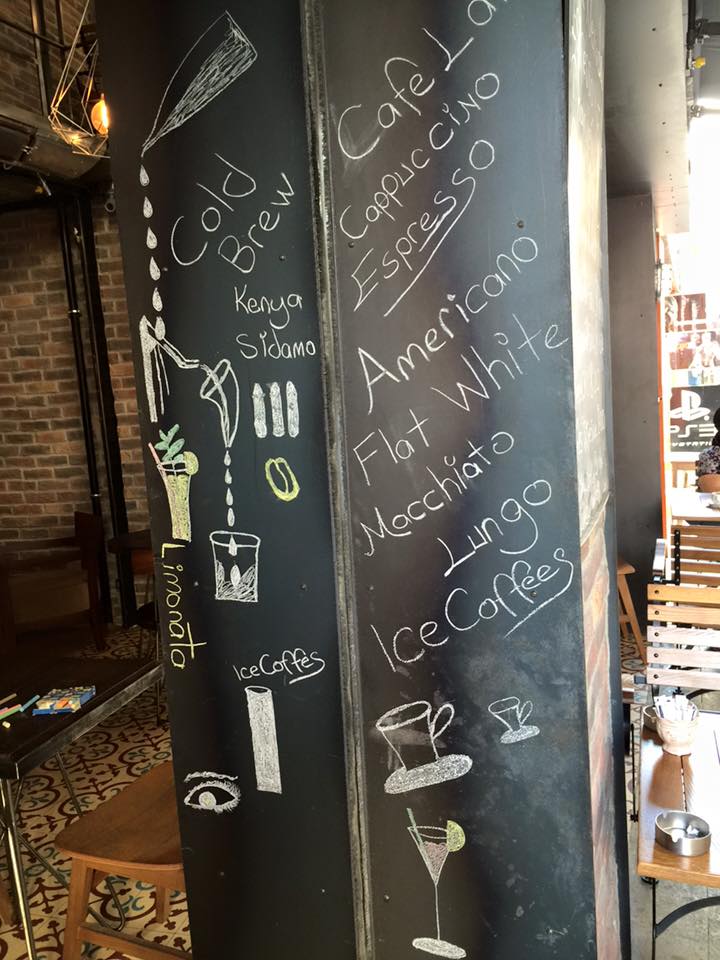 Cold
Brew
Kenya
Sidamo
Limonata
Ice Coffes
Cafe
Cappuccino
Espresso
Americano
Flat White
Macchiato
Lungo
Ice Coffees
PS3